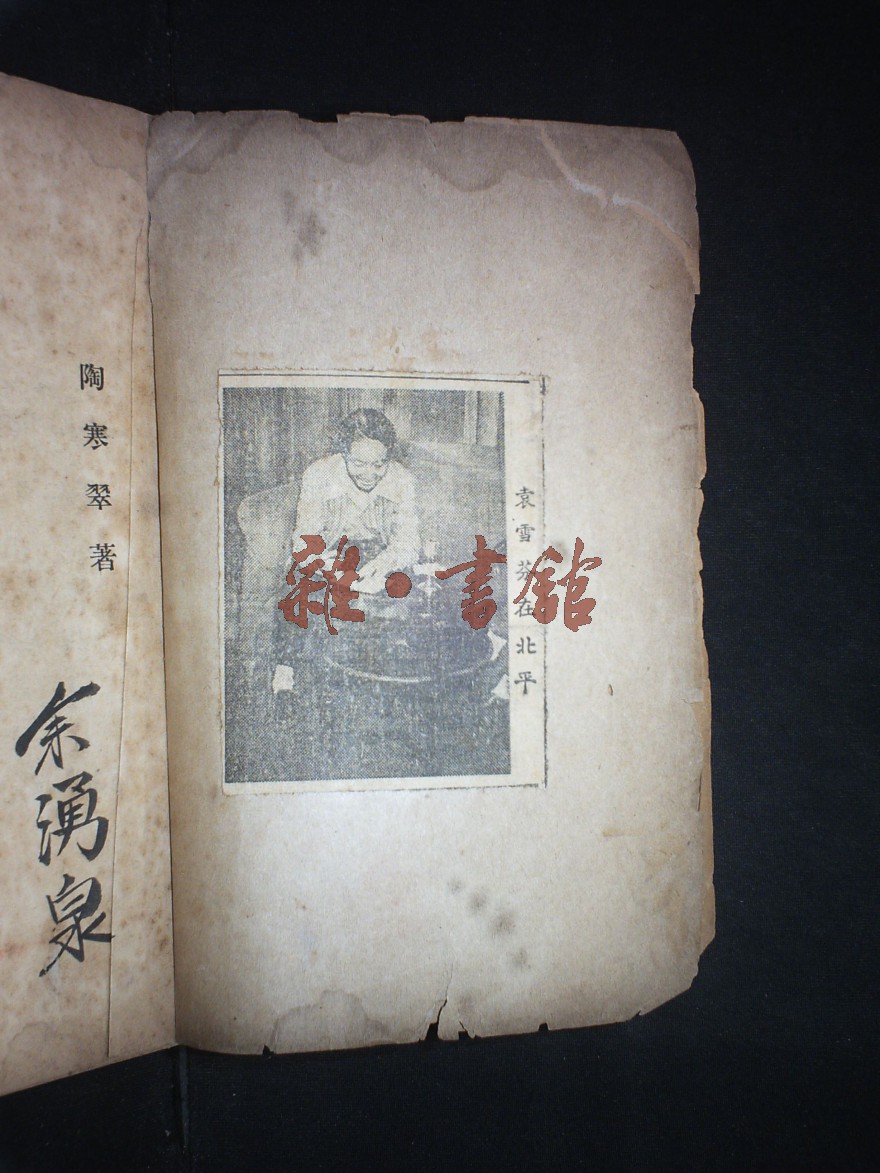 袁雪芬在北平
雜·書館
陶寒翠著
余湧泉